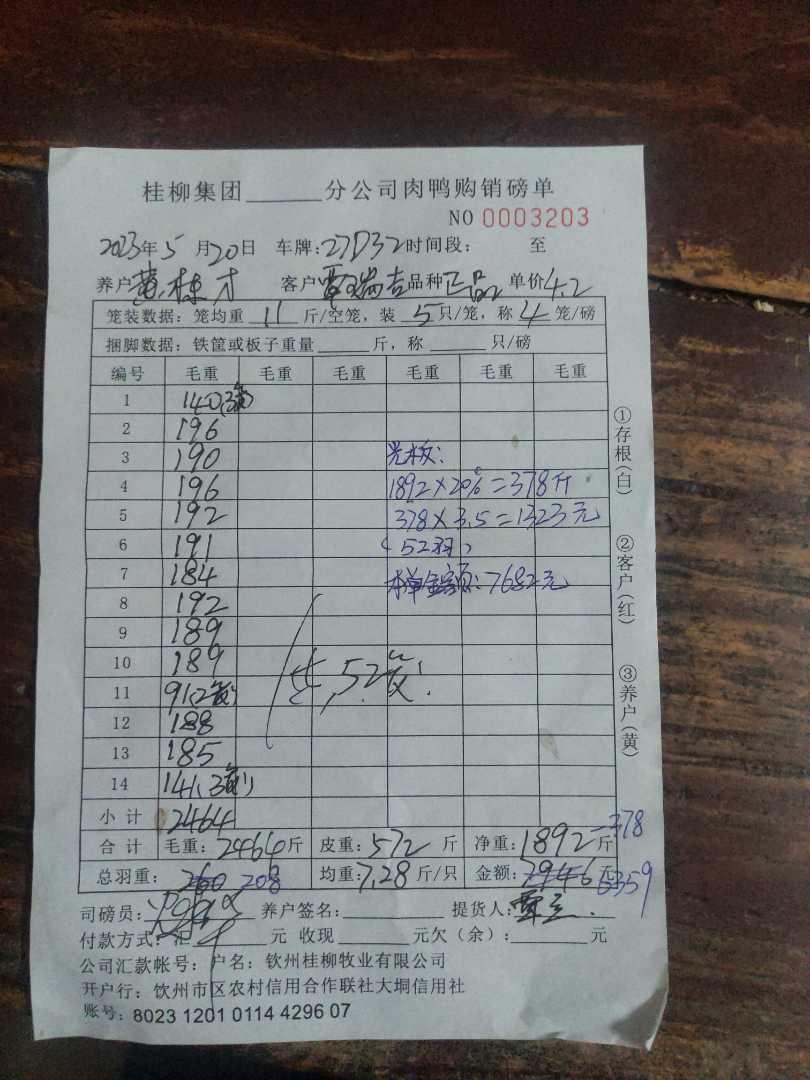 桂柳集团______分公司肉鸭购销磅单
NO 0003203
2023年5月20日 车牌:27D32 时间段: 至
养户 黄栋才 客户 覃瑞吉 品种 正品 单价 4.2
笼装数据: 笼均重 11 斤/空笼, 装 5 只/笼, 称 4 笼/磅
捆脚数据: 铁筐或板子重量______斤, 称______只/磅
编号 毛重 毛重 毛重 毛重 毛重 毛重
1 140(3笼)
2 196
3 190 光板:
4 196 1892×20%=378斤
5 192 378×3.5=1323元
6 191 (52羽)
7 184 本单金额:7682元
8 192
9 189
10 189 52笼
11 91(2笼)
12 188
13 185
14 141(3笼)
小计 2464
合计 毛重: 2464斤 皮重: 572 斤 净重: 1892斤 -378
总羽重: 260 208 均重: 7.28 斤/只 金额: 7946元 6359
司磅员: 养户签名: 提货人:
付款方式: 汇______元 收现______元欠(余):______元
公司汇款帐号: 户名: 钦州桂柳牧业有限公司
开户行: 钦州市区农村信用合作联社大垌信用社
账号: 8023 1201 0114 4296 07
①存根(白)
②客户(红)
③养户(黄)